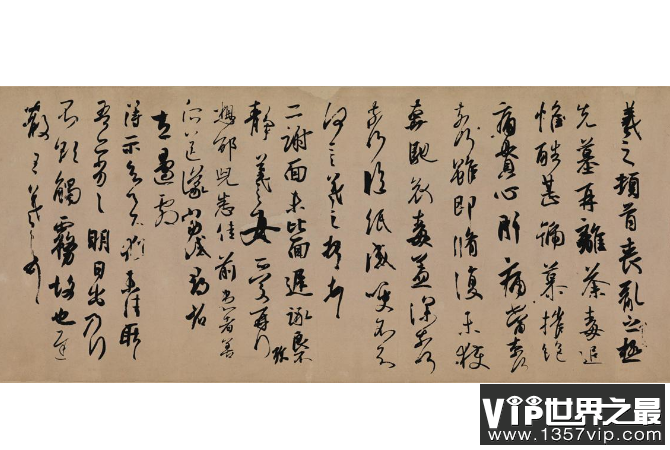 羲之頓首喪亂之極
先墓再離荼毒追
惟酷甚號慕摧絕
痛貫心肝痛當奈
奈何雖即脩復未獲
奔馳哀毒益深奈何
奈何臨紙感哽不知
何言羲之頓首
二謝面未比面遲詠良不
靜羲之女愛再拜
想邰兒悉佳前患者善
所送議當試尋省
左邊劇
得示知足下猶未佳耿耿
吾亦劣劣明日出乃行
不欲觸霧故也遲
散王羲之頓首
VIP世界之最
www.1357vip.com